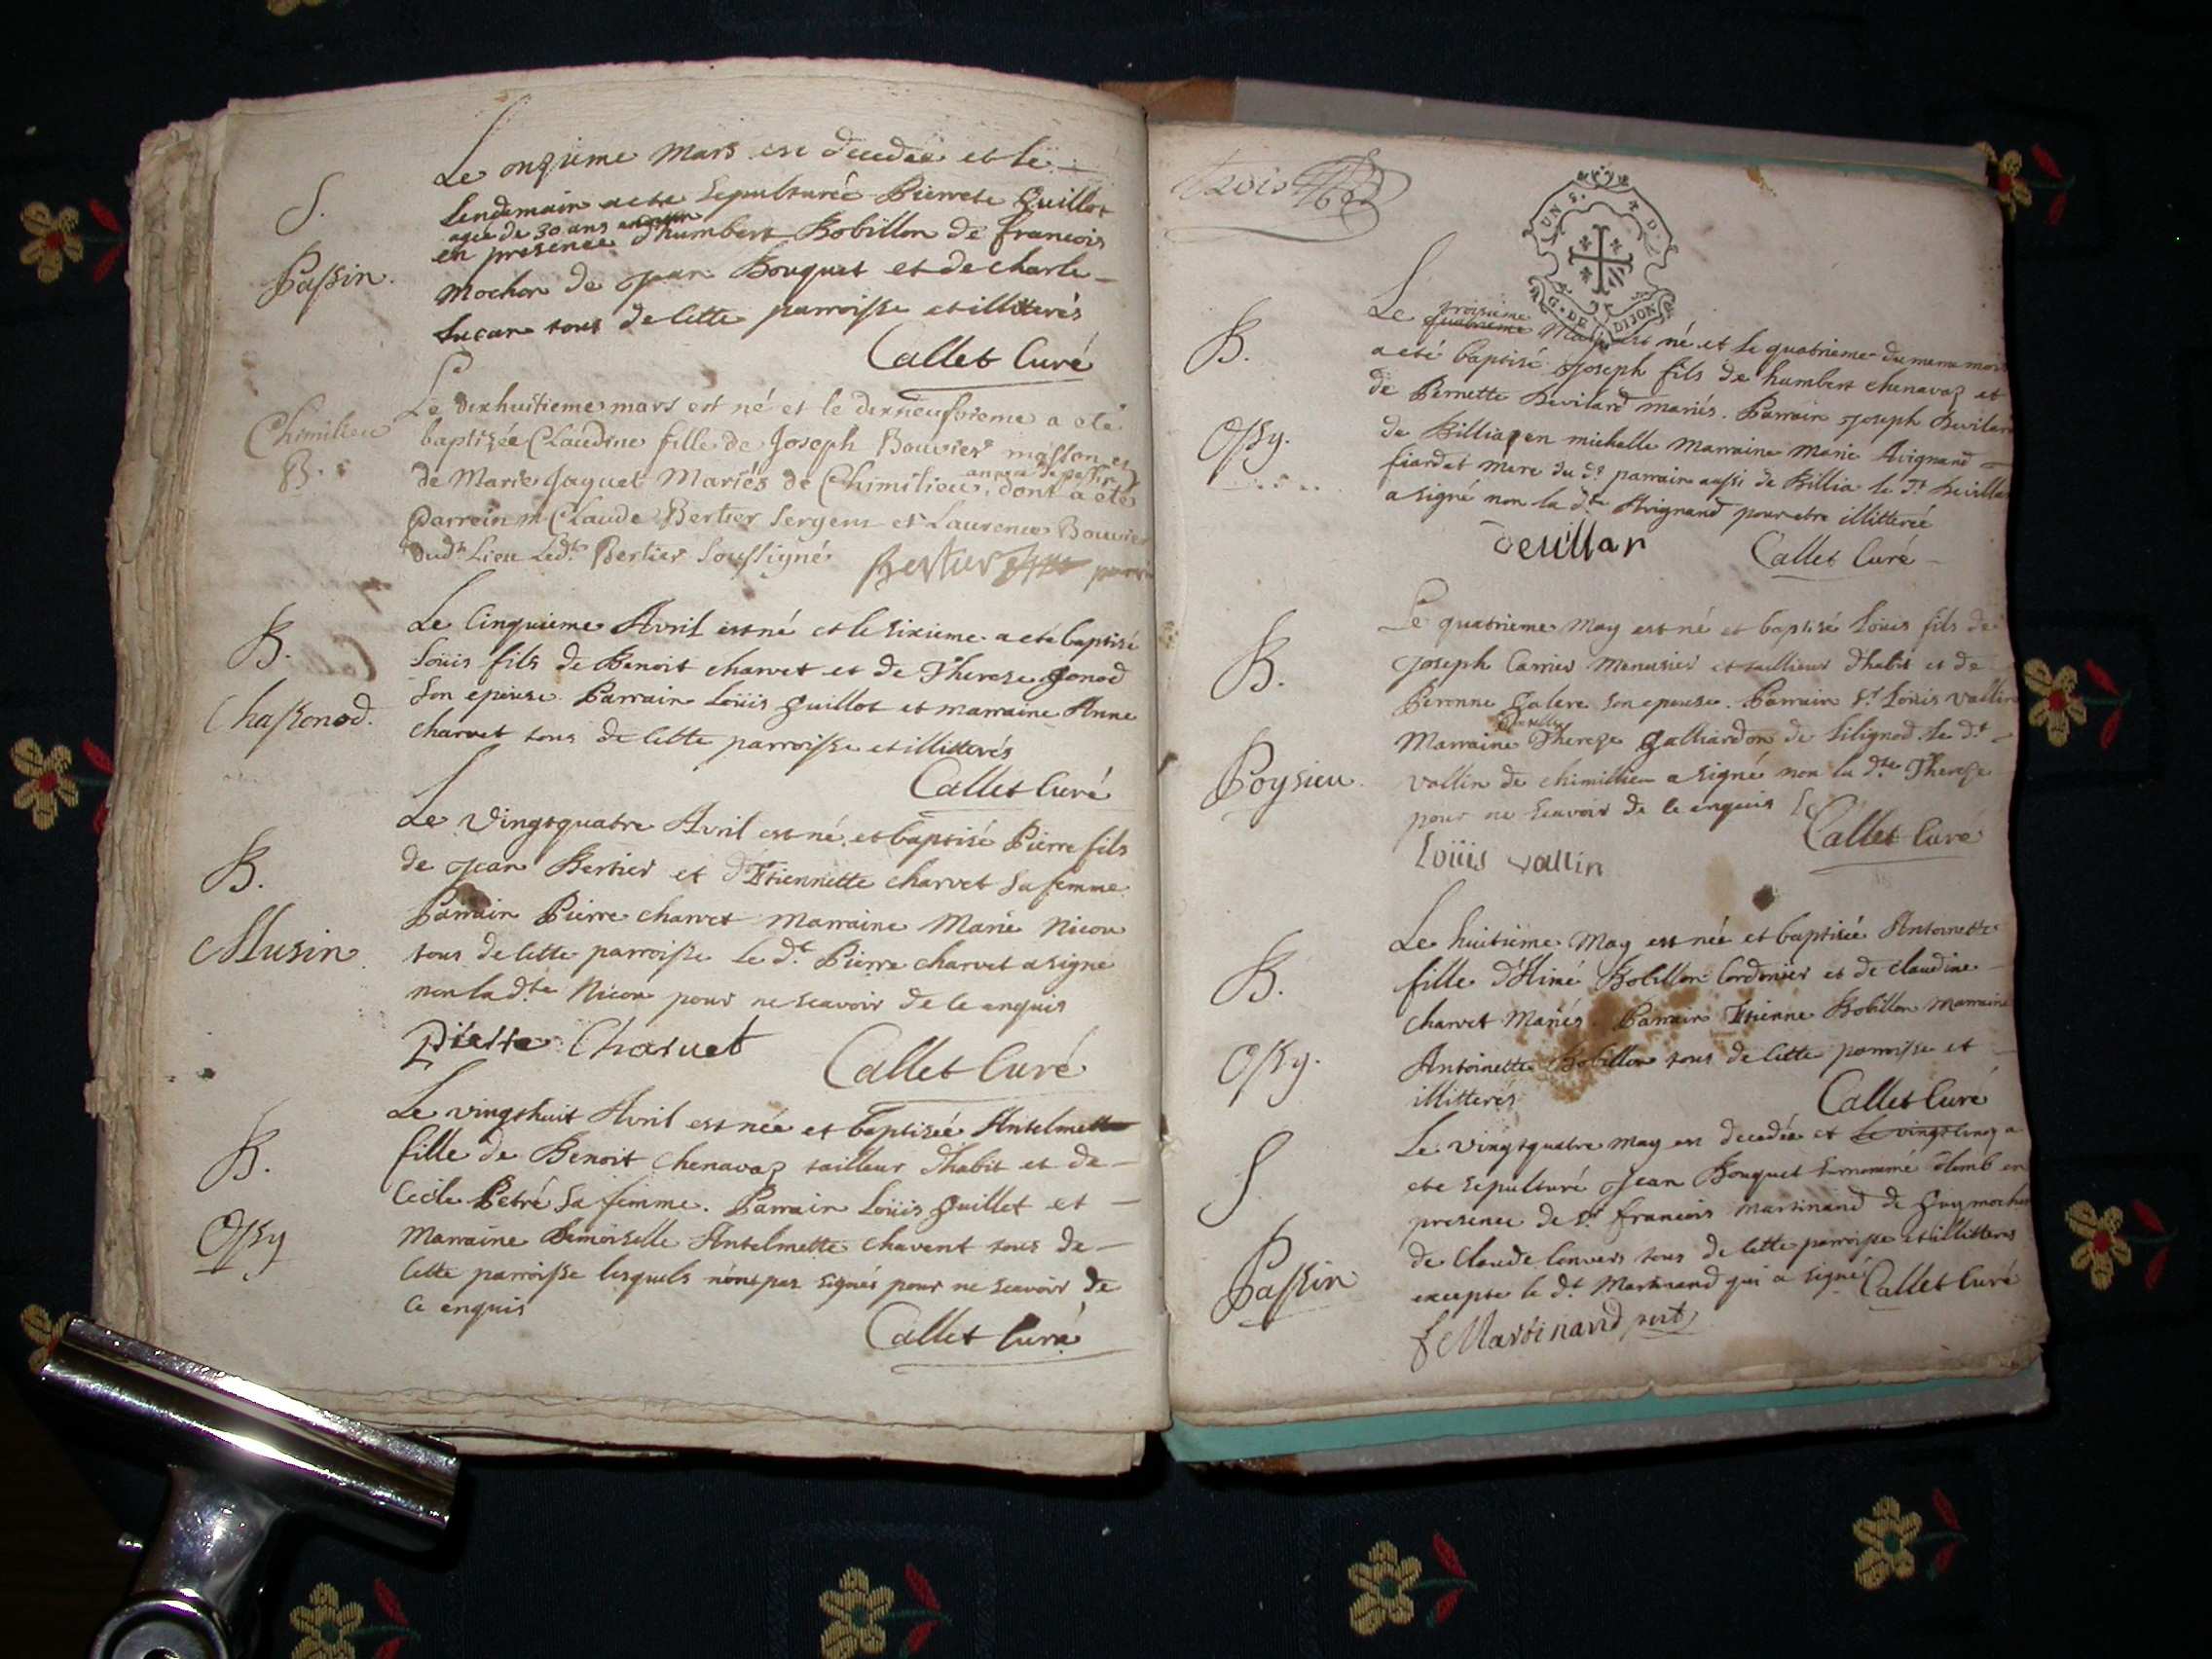 Le onzieme mars est decedée et le
S.
lendemain a ete sepulturée Pierrete Guillot
agée de 30 ans environ
en presence d'humbert Bobillon de francois
Passin.
Mochon de jean Bouquet et de charle
tous de cette parroisse et illiterés
Callet Curé
Chimilieu
B.
Le dixhuitieme mars est né et le dixneufvieme a eté
baptisée Claudine fille de Joseph Bouvier masson et
de Marie Jaquet Mariés de Chimilieu, dont a eté
parrein mr Claude Bertier sergent et Laurence Bouvier
dudt Lieu Ledt Bertier soussigné
Bertier
B.
Le Cinquieme Avril est né et le sixieme a ete baptisé
Loüis fils de Benoit charvet et de Therese gonod
Chassonod.
son epouse. Parrain Loüis guillot et marraine Anne
charvet tous de cette parroisse et illitterés
Callet Curé
Le Vingtquatre Avril est né, et baptisé Pierre fils
B.
de jean Bertier et d'Etiennette charvet sa femme
Parrain Pierre charvet marraine Marie Nicou
Musin
tous de cette parroisse le dt Pierre charvet a signé
non la dte Nicou pour ne scavoir de ce enquis
Pierre Charuet
Callet Curé
Le vingthuit Avril est née et baptiseé Antelmette
B.
fille de Benoit chenavaz tailleur d'habit et de
Cecile Petré sa femme. Parrain Loüis guillet et
Ossy
Marraine Demoiselle Antelmette chavent tous de
cette parroisse lesquels n'ont pas signés pour ne scavoir de
ce enquis
Callet Curé
trois
UN S. 4 D.
G. DE DIJON
troisieme
Le quatrieme May est né et le quatrieme du meme mois
B.
a eté baptisé joseph fils de humbert chenavaz et
de Pernette Devilard mariés. Parrain joseph Devilard
Ossy.
de Billia en michelle marraine Marie Avignand
fiardet mere du dt parrain aussi de Billia le dt Devillar
a signé non la dte Avignand pour etre illitterée
Deuillar
Callet Curé
Le quatrieme May est né et baptisé Loüis fils de
B.
joseph Carrier menusier et taillieur d'habit et de
Peronne galere son epouse. Parrain sr Loüis vallin
Poysieu
Marraine Therese galliardon de Silignod. le dt
vallin de chimillieu a signé non la dte Therese
pour ne scavoir de ce enquis
Callet Curé
Loüis vallin
Le huitieme May est née et baptisée Antoinette
B.
fille d'Aimé Bobillon Cordonier et de claudine
charvet Mariés. Parrain Etienne Bobillon marraine
Ossy.
Antoinette Bobillon tous de cette parroisse et
illitterés
Callet Curé
Le vingtquatre may est decedée et le vingtcinq a
S
ete sepulturé jean Bouquet surnommé Colomb en
presence de sr francois martinand de guy mochon
Passin
de claude Convers tous de cette parroisse et illitteres
excepte le dt Martinand qui a signé
Callet Curé
f Martinand